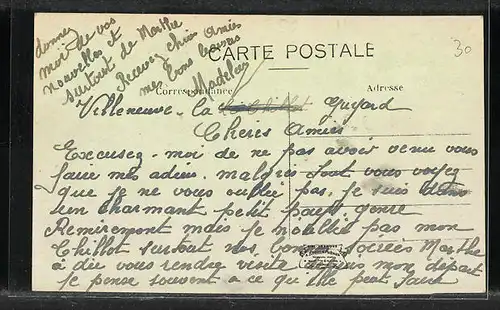 CARTE POSTALE
Correspondance
Adresse
30
Villeneuve-la Guyard
Chères Amies
Excusez-moi de ne pas avoir venu vous
faire mes adieu. malgrès tout vous voyez
que je ne vous oublie pas, je suis dans
un charmant petit pays genre
Remiremont mais je n'oublie pas mon
Chillot surtout nos bonnes soirées Marthe
a dû vous rendre visite depuis mon départ
je pense souvent a ce qu'elle peut faire
donnez
moi de vos
nouvelles et
surtout de Marthe
Recevez chères Amies
mes bons baisers
Madeleine